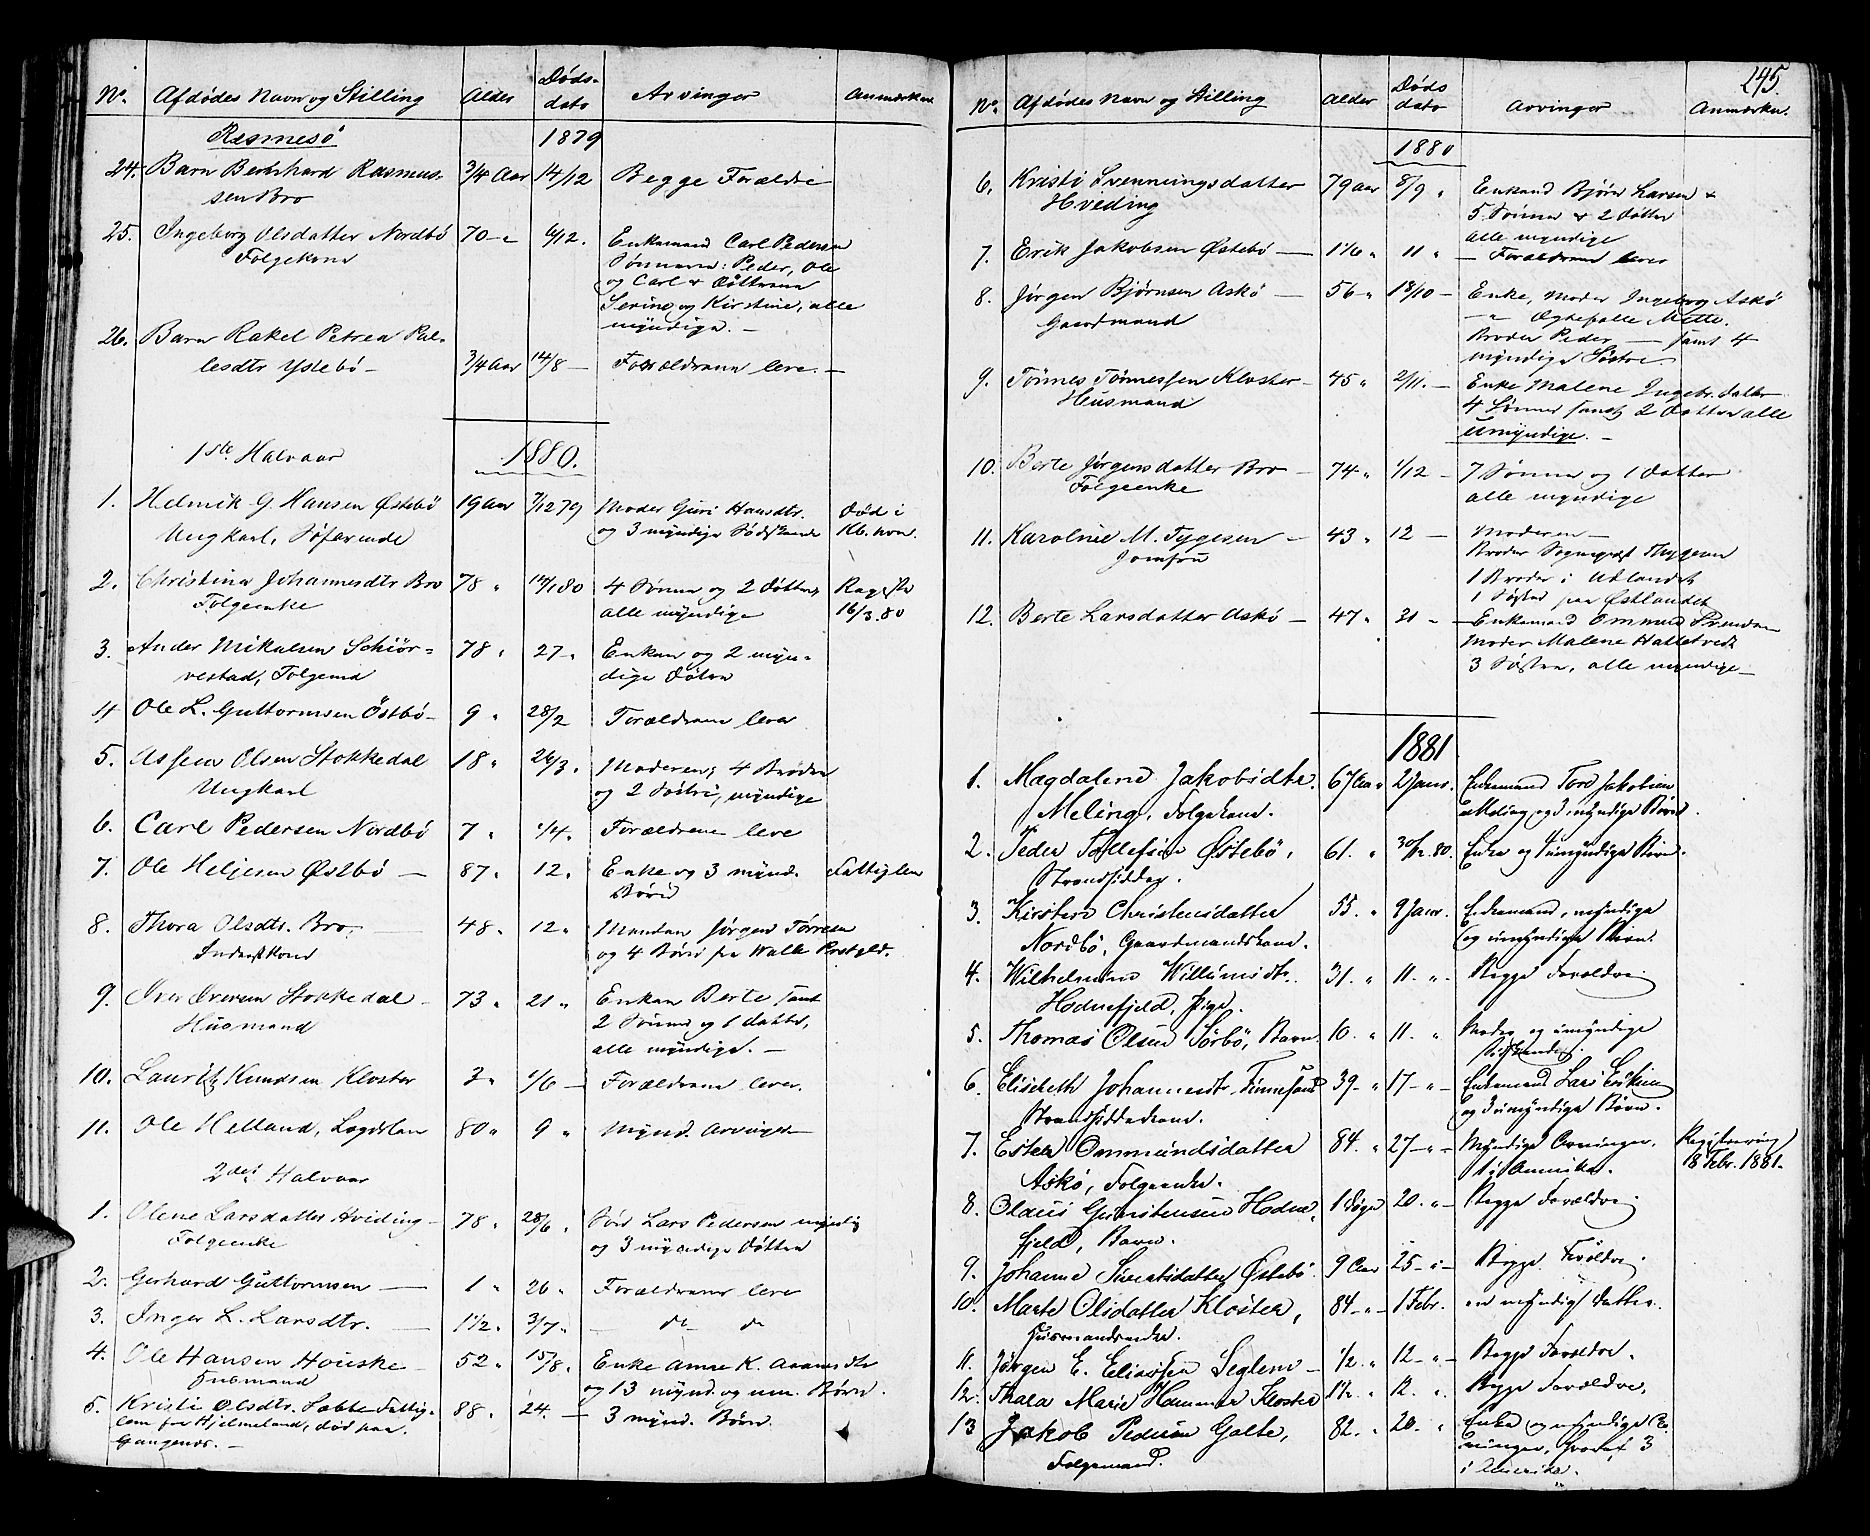 No. Afdødes Navn og Stilling Alder Døds-dato Arvinger Anmærkn.
Rasmesö 1879
24. Barn Bernhard Rasmus- 3/4 Aar 14/12 Begge Forældre
sen Bro
25. Ingeborg Olsdatter Nordbö 70 - " 6/12. Enkemand Carl Pedersen
Folgekone Sönnerne: Peder, Ole
og Carl & Döttrene
Serine og Kirstine, alle
myndige. —
26. Barn Rakel Petrea Pal-
lesdtr Ystebö - 3/4 Aar 14/8 — Forældrene leve. —
1ste Halvaar 1880.
1. Helmik G. Hansen Østebö 19 aar 7/12 79 Moder Guri Hansdtr. död i
Ungkarl, Söfarende og 3 myndige Södskende Kb.havn.
2. Christina Johannesdtr Bro 78 " 14/1 80 4 Sönner og 2 Döttre,
Folgeenke alle myndige 16/3 80
3. Ander Mikalsen Schiör- 78 " 27 - Enken og 2 myn-
vestad, Folgemd dige Døtre
4 Ole L. Guttormsen Östbö - 9 " 28/2 Forældrene lever
5. Assen Olsen Stokkedal 18 " 26/3 - Moderen, 4 Brödre
Ungkarl og 2 Söstre, myndige
6. Carl Pedersen Nordbö 7 " 1/4 - Forældrene leve
7. Ole Heljesen Østbö — 87 " 12 " Enke og 3 mynd. Fattiglem
Börn
8. Thora Olsdtr. Bro, — 48 " 12 " Manden Jörgen Törresen
Inderstkone og 4 Börn fra Walle Prstgld.
9. Iver Iversen Stokkedal - 73 " 21 " Enken Berte samt
Husmand 2 Sönner og 1 datter,
alle myndige. —
10. Lauritz Knudsen Kloster 3 " 1/6 — Forældrene lever.
11. Ole Helland, Logslem 80 " 9 " Mynd. Arvinger
2det Halvaar
1. Olene Larsdatter Hviding - 78 " 28/6 " Sön Lars Pedersen myndig
Folgeenke og 3 myndige Döttre
2. Gerhard Guttormsen — 1 " 26 " Forældrene leve
3. Inger L. Larsdtr. — 1 1/2 " 3/7 " — do do
4. Ole Hansen Houske - 52 " 15/8 " Enke Anne K. Aanensdtr
Husmand og 13 mynd. og um. Börn.
5. Kristi Olsdtr. Fattig- 88 " 24. — 3 mynd. Børn
lem for Hjelmeland, död paa
Gangenes. —
245.
No. Afdødes Navn og Stilling Alder Døds dato Arvinger Anmærkn.
1880
6. Kristi Svenningsdatter 79 aar 8/9 " Enkemd Bjørn Larsen &
Hveding 5 Sönner & 2 Døttre
alle myndige
7. Erik Jakobsen Østebö — 1 1/6 " 11 " — Forældrene lever
8. Jörgen Bjørnsen Askö — 56 " 18/10 — Enke, Moder Ingeborg Askö
Gaardmand — " Ægtefælle Mette.
Broder Peder — samt 4
myndige Söstre —
9. Tönnes Tönnessen Kloster - 45 " 2/11. — Enke Malene Ingebr.datter
Husmand 4 Sönner samt 2 Døttre alle
umyndige. —
10. Berte Jörgensdatter Bro — 74 " 1/12 — 7 Sönner og 1 Datter
Folgeenke alle myndige
11. Karoline M. Tygesen — 43 " 12 — Moderen —
Jomfru Broder Sogneprst Thygesen
1 Broder i Udlandet
1 Söster paa Østlandet
12. Berte Larsdatter Askö — 47 " 31 — Enkemand Ommund
Moder Malene Halletvedt
3 Søstre, alle myndige —
1881
1. Magdalene Jakobsdtr. 67 Aar " 2 Janr. Enkemand Tore Jakobsen
Meling, Folgekone. Meling og 3 myndige Börn.
2. Peder Tollefsen Østebö, 61. " 30/12.80. Enke og 4 umyndige Börn.
Strandsidder.
3. Kirsten Christensdatter 55. " 9 Janr. Enkemand, myndige
Nordbö, Gaardmandskone. og umyndige Börn.
4. Wilhelmine Willumsdtr. 31. " 11. " Begge Forældre.
Hodnefjeld, Pige.
5. Thomas Olsen Sörbö, Barn 10. " 11. " Moder og umyndige
Södskende.
6. Elisabeth Johannesdtr. Finnesand 39 - " 17 - " - Enkemand Lars Eriksen
Strandsidderkone. og 3 umyndige Börn.
7. Ester Ommundsdatter 84. " 27 - " - Myndige Arvinger, Registrering
Askö, Folgeenke. i Amerika. 18 Febr. 1881.
8. Olaus Hodne- 1 Døgn 20. " - Begge Forældre
fjeld, Barn.
9. Johanne Sivertsdatter Østebö 9 Aar 25 - " - Begge Forældre
10. Marte Olsdatter Kloster, 84 - " - 1 Febr. en myndig Datter.
Husmandsenke.
11. Jörgen E. Eliassen Seglem — 1/2 " 12 - " - Begge Forældre.
12. Thala Marie Hammer Kloster 1 1/2 " 12. " Begge Forældre,
13 Jakob Pedersen Galte, 82. " 20. " Enke og myndige Ar-
Folgemand. vinger, hvoraf 3
i Amerika.